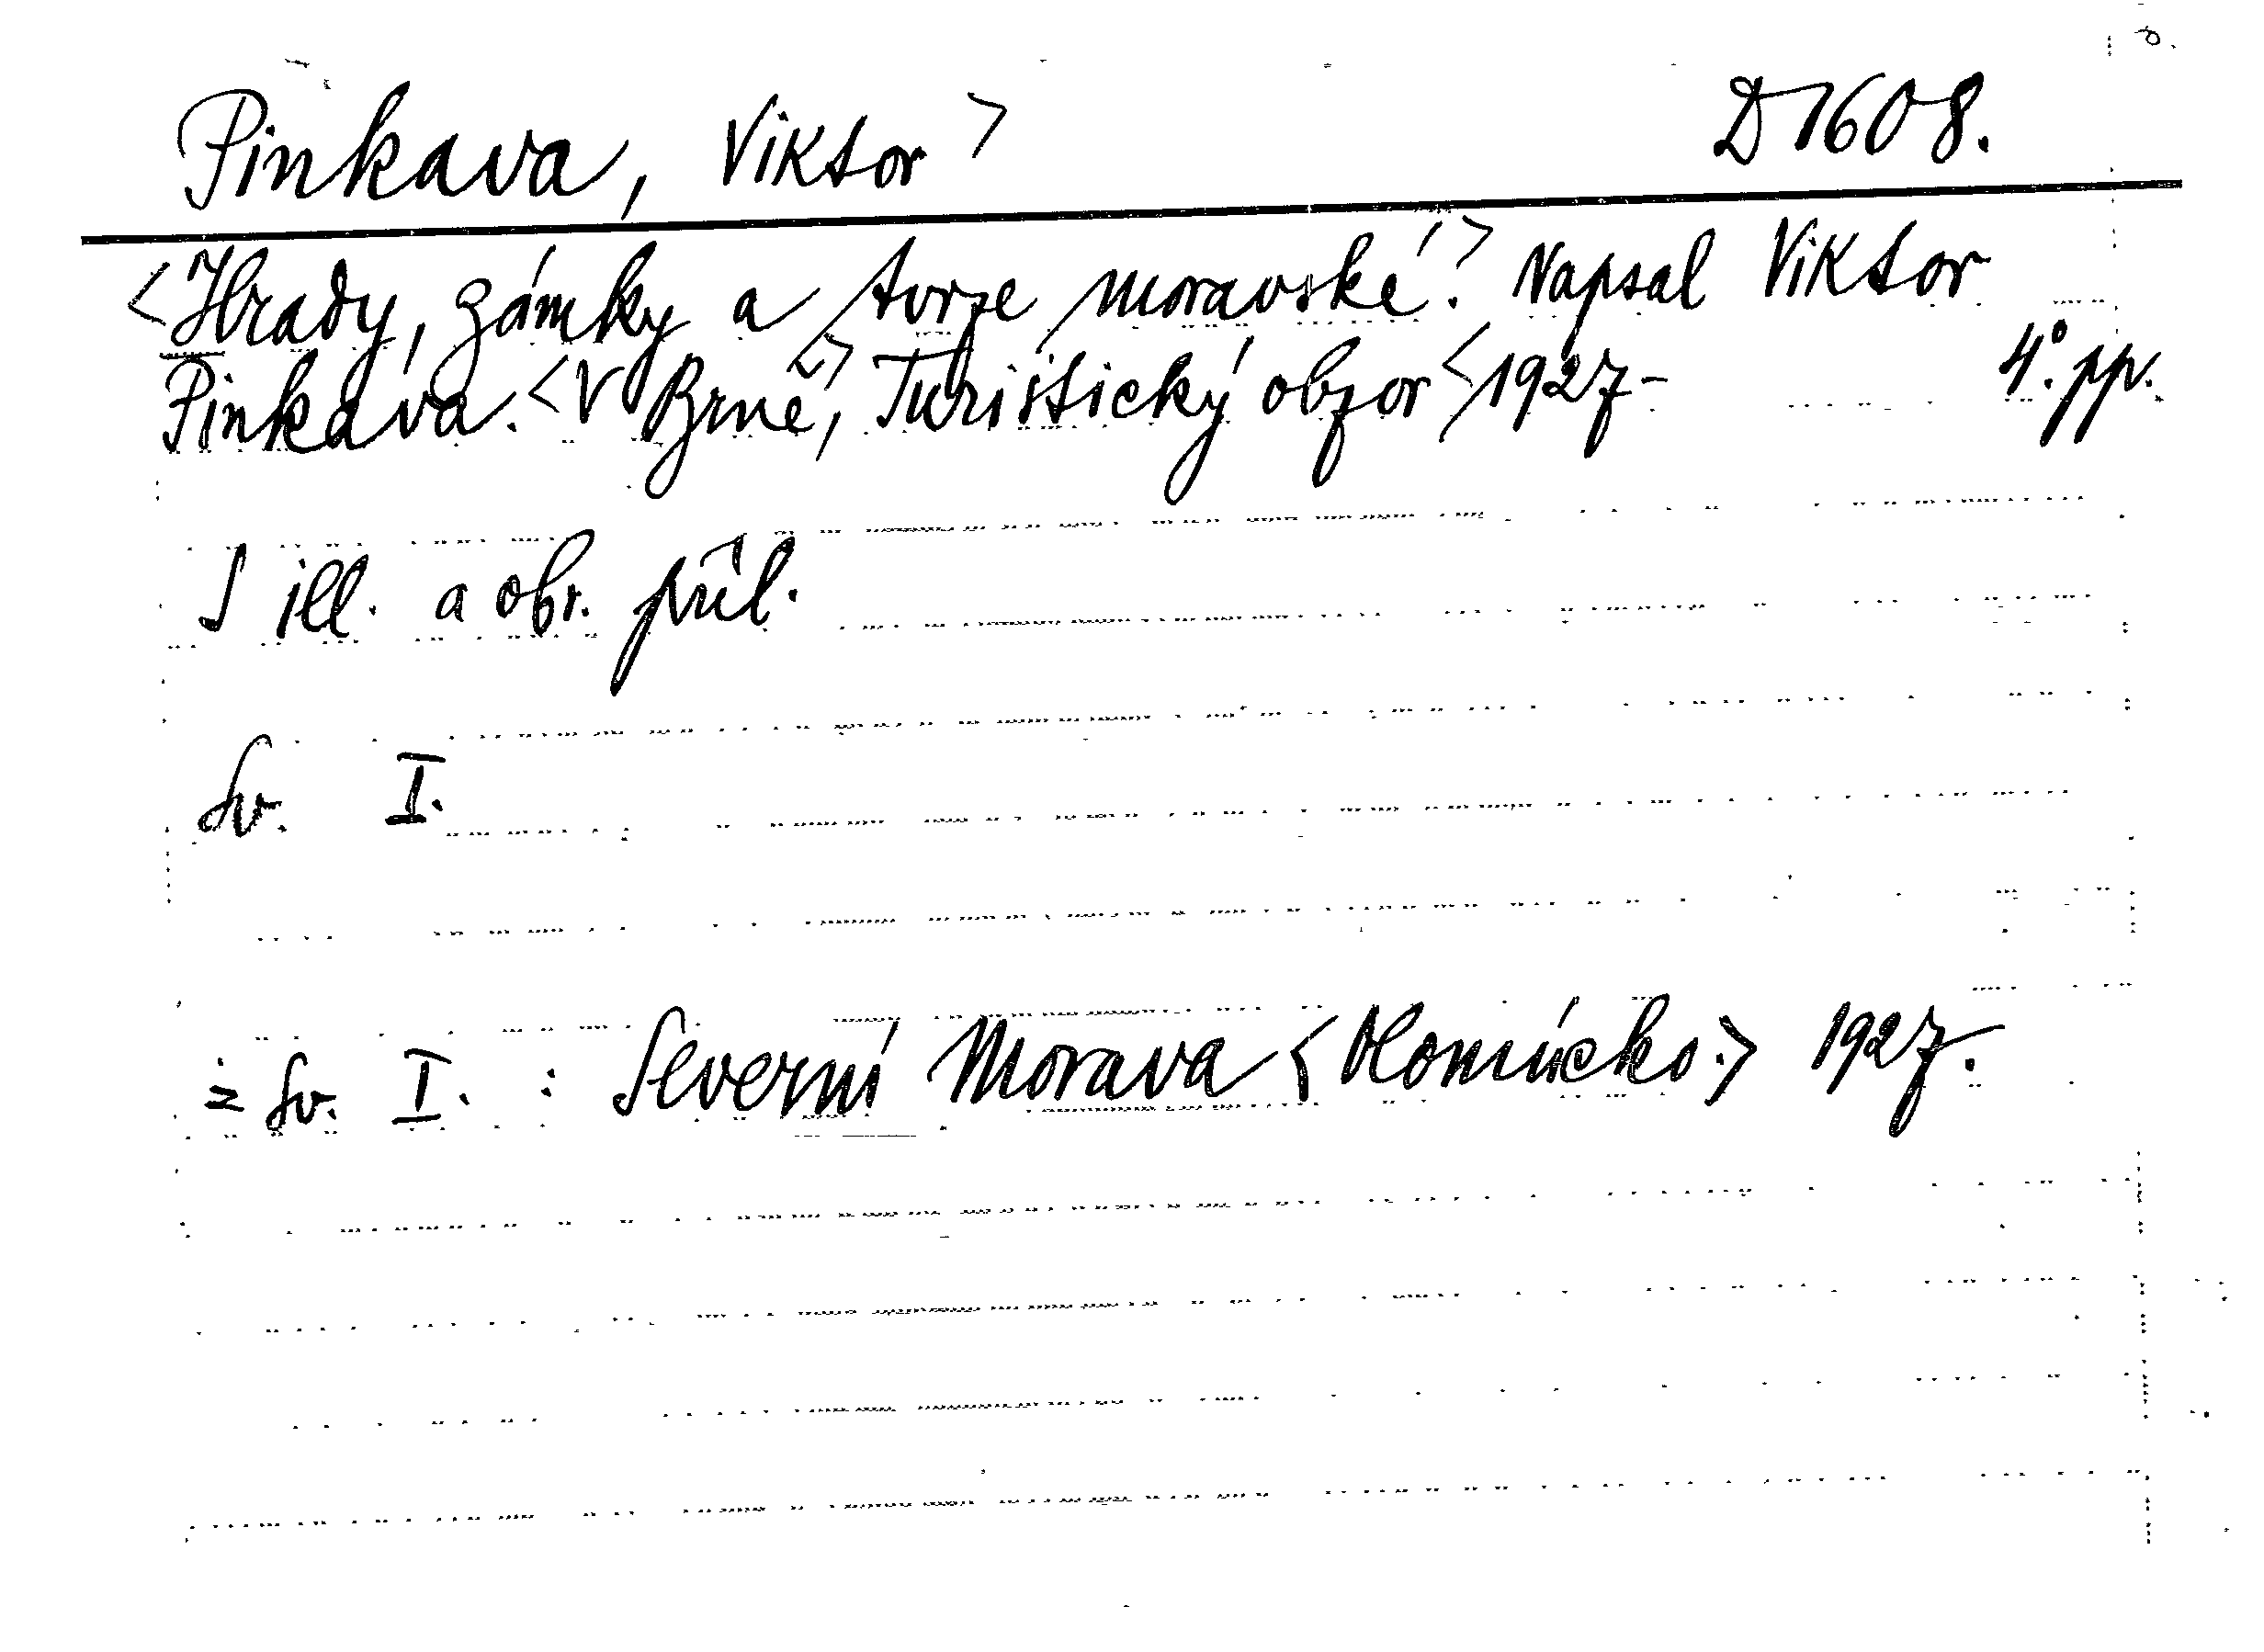 Pinkava, Viktor > D 1608.
<Hrady, zámky a tvrze moravské.> Napsal Viktor
Pinkava. <V Brně,> Turistický obzor <,1927- 4°. pp.
S ill. a obr. příl.
Sv. I.
= Sv. I. : Severní Morava <Olomúcko.> 1927.